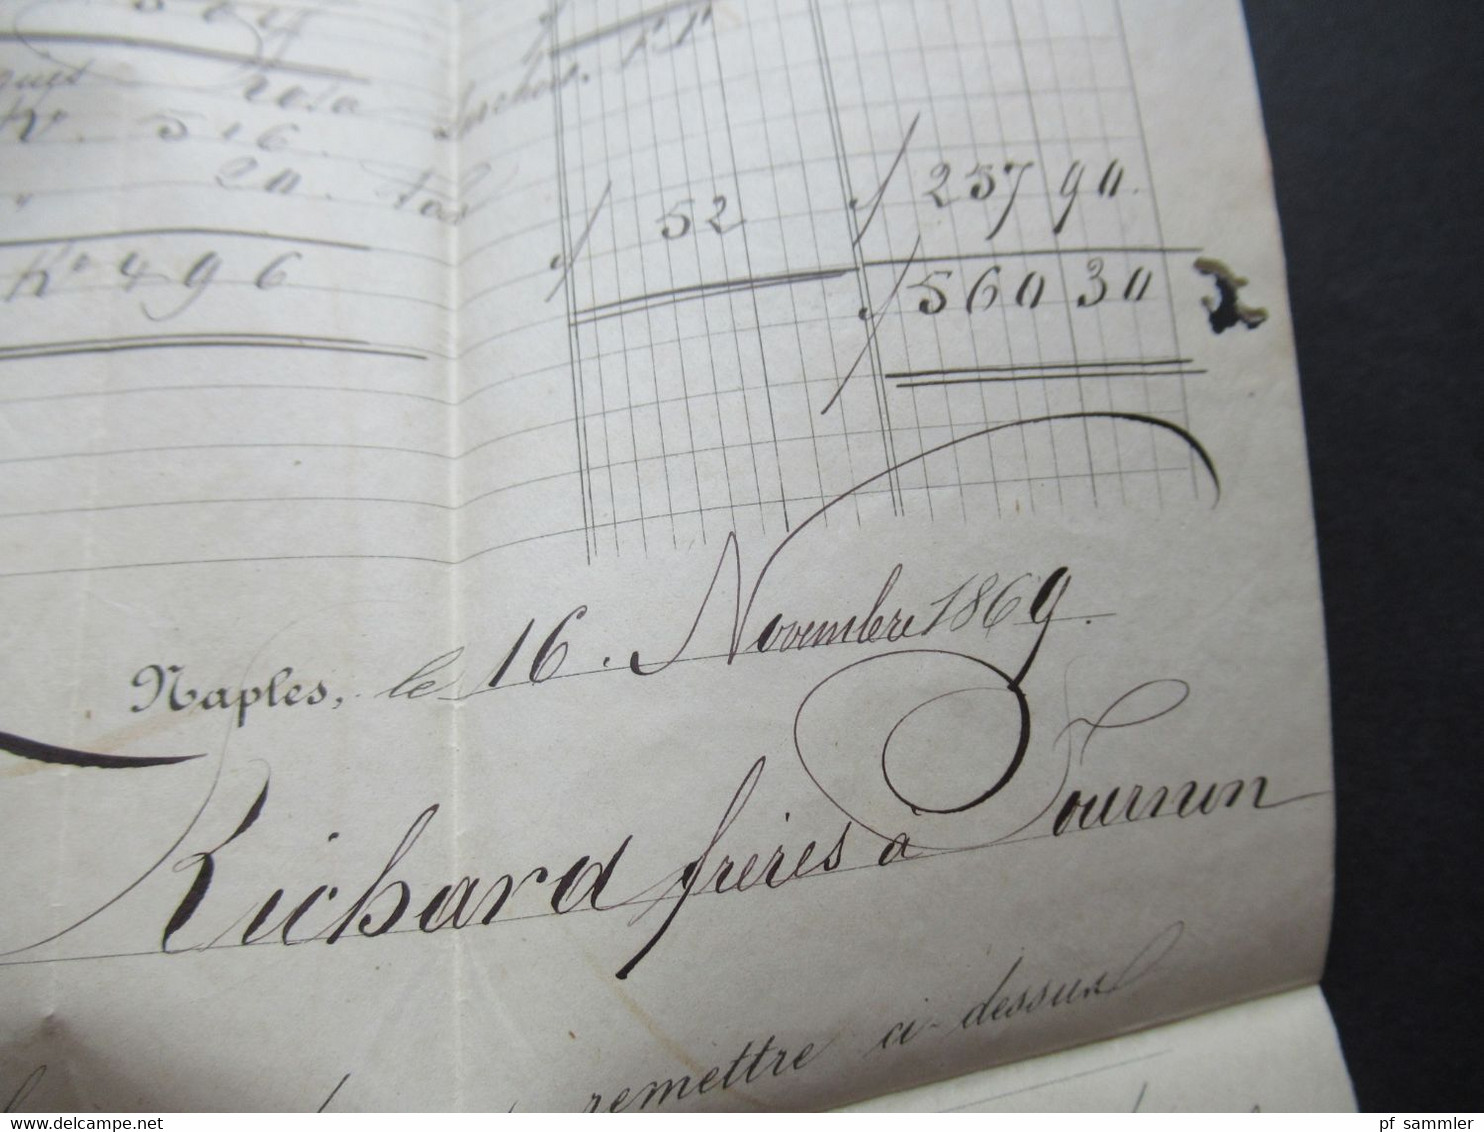 K° 516.
" 20. f 52 f 257 90.
K° 496 f 560 30
Naples, le 16. Novembre 1869.
Richard frères à Tournon
remettre ci-dessus
pf sammler